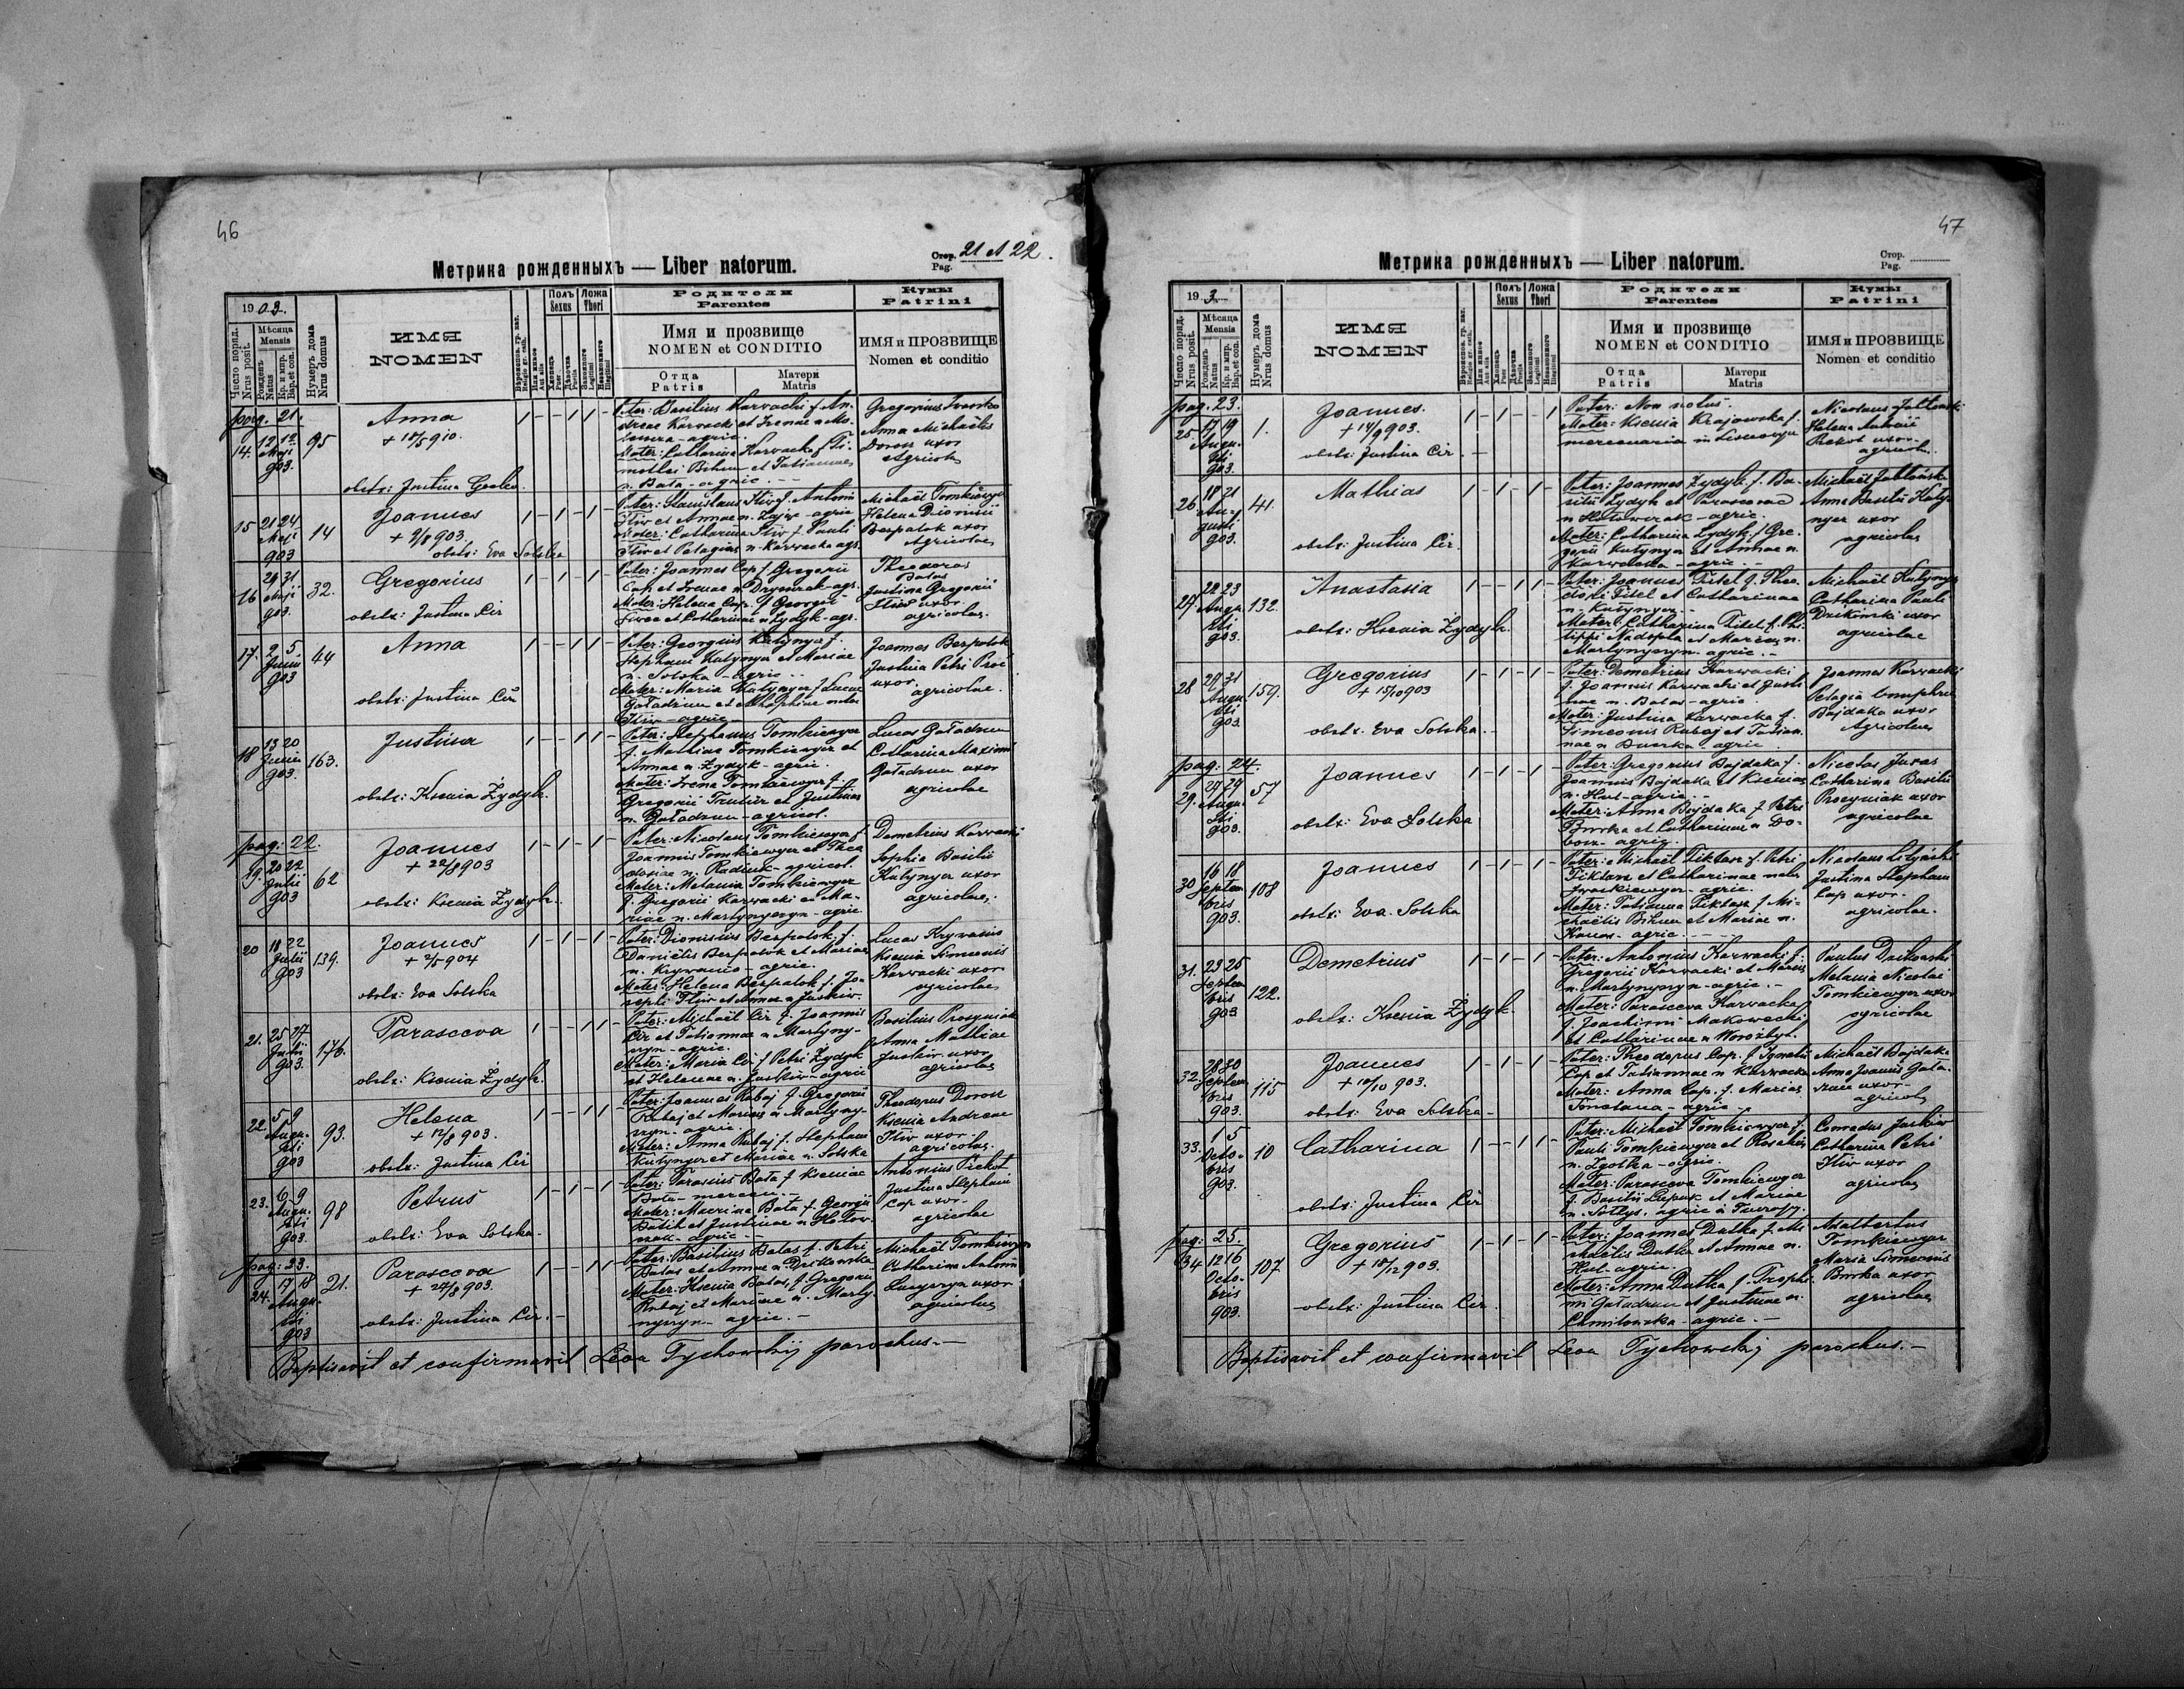 46
Стор. 21 et 22.
Pag.
Метрика рожденныхъ — Liber natorum.
1903.
Число поряд.
Nrus posit.
Мѣсяца
Mensis
Рожденъ
Natus
Кр. и мпр.
Bap. et con.
Нумеръ дома
Nrus domus
ИМЯ
NOMEN
Полъ
Sexus
Ложа
Thori
Родители
Parentes
Имя и прозвище
NOMEN et CONDITIO
Отца
Patris
Матери
Matris
Кумы
Patrini
ИМЯ и ПРОЗВИЩЕ
Nomen et conditio
pag. 21.
14. 12 12 Maji 903. 95
Anna
+ 18/5 910.
obstx: Justina
Pater: Basilius Karwacki f. An-
dreae Karwacki et Irenae n. Mo-
agric.
Mater: Catharina Karwacka f. Ti-
mothei Bihun et Tatiannae
n. Bata - agric.
Gregorius Iwasko
Anna Michaelis
Dorosz uxor
Agricolae
15 21 24 Maji 903 14
Joannes
+ 9/8 903.
obstx: Eva Solska
Pater: Stanislaus Iliw f. Antonii
Iliw et Annae n. Zając - agric
Mater: Catharina Iliw f. Pauli
Iliw et Pelagiae n. Karwacka agr.
Michaël Tomkiewycz
Helena Dionisii
Bezpalok uxor
Agricolae
16 29 31 Maji 903. 32.
Gregorius
obstx: Justina Cir
Pater: Joannes Cap f. Gregorii
Cap et Irenae n. - agr.
Mater: Helena Cap f. Georgii
et Catharinae n. Zydyk - agr.
Theodorus
Batas
Justina Gregorii
Iliw uxor
agricolae.
17. 2 5. Junii 903 44
Anna
obstx: Justina Cir
Pater: Georgius Kutynycz f.
Stephani Kutynycz et Mariae
n. Solska - agric.
Mater: Maria Kutynycz f. Lucae
Gatadzun et
Iliw - agric.
Joannes Bezpalok
Justina Petri
uxor
agricolae.
18 13 20 Junii 903. 163.
Justina
obstx: Ksenia Żydyk.
Pater: Stephanus Tomkiewycz
f. Mathiae Tomkiewycz et
Annae n. Zydyk - agric.
Mater: Irena Tomkiewycz f.
Gregorii et Justinae
n. Gatadzun - agricol.
Lucas Gatadzun
Catharina Maximi
Gatadzun uxor
agricolae
pag: 22.
19. 20 22 Julii 903 62
Joannes
+ 22/8 903
obstx: Ksenia Zydyk.
Pater: Nicolaus Tomkiewycz f.
Joannis Tomkiewycz et Theo
dosiae n. Radiuk - agricol.
Mater: Melania Tomkiewycz
f. Gregorii Karwacki et Ma-
riae n. Martynyszyn - agric
Demetrius Karwacki
Sophia Basilii
Kutynycz uxor
agricolae.
20 18 22 Julii 903 139.
Joannes
+ 2/5 904
obstx: Eva Solska
Pater: Dionisius Bezpalok f.
Danielis Bezpalok et Mariae
n. Krywanis - agric.
Mater: Helena Bezpalok f. Jo-
sephi Iliw et Annae n. Jaskiw.
Lucas Krywanis
Ksenia Simeonis
Karwacki uxor
agricolae
21. 25 27 Julii 903. 176.
Parasceva
obstx: Ksenia Zydyk.
Pater: Michaël Cir f. Joannis
Cir et Tatiannae n. Martyny-
szyn - agric.
Mater: Maria Cir f. Petri Zydyk
et Helenae n. Jaskiw - agric
Basilius Procyniak
Anna Mathiae
Jaskiw uxor
agricolae
22. 5 9 Augusti 903 93.
Helena
+ 12/8 903.
obstx: Justina Cir
Pater: Joannes Rubaj f. Gregorii
Rubaj et Mariae n. Martyny-
szyn - agric.
Mater: Anna Rubaj f. Stephani
Kutynycz et Mariae n. Solska
Theodorus Dorosz
Ksenia Andreae
Iliw uxor.
agricolae.
23. 6 9 Augusti 903. 98
Petrus
obstx: Eva Solska.
Pater: Tarasius Bata f. Kseniae
Bata - mercen.
Mater: Marina Bata f. Georgii
et Justinae n. Holow-
czak - agric.
Antonius Piekot
Justina Stephani
Cap uxor.
agricolae
pag: 23.
24. 17 18 Augusti 903 21.
Parasceva
+ 22/8 903.
obstx: Justina Cir.
Pater: Basilius Batas f. Petri
Batas et Annae n. Dzikowska.
Mater: Ksenia Batas, f. Gregorii
Rubaj et Mariae n. Marty-
nyszyn - agric.
Michaël Tomkiewycz
Catharina Antonii
uxor
agricolae
Baptisavit et confirmavit Leon Tychowskij parochus.
47
Стор.
Pag.
Метрика рожденныхъ — Liber natorum.
19 3.
Число поряд.
Nrus posit.
Мѣсяца
Mensis
Рожденъ
Natus
Кр. и мпр.
Bap. et con.
Нумеръ дома
Nrus domus
ИМЯ
NOMEN
Полъ
Sexus
Ложа
Thori
Родители
Parentes
Имя и прозвище
NOMEN et CONDITIO
Отца
Patris
Матери
Matris
Кумы
Patrini
ИМЯ и ПРОЗВИЩЕ
Nomen et conditio
pag. 23.
25 17 19 Augusti 903. 1.
Joannes.
+ 14/9 903.
obstx: Justina Cir.
Pater: Non notus.
Mater: Ksenia Krajowska f.
mercenaria in
Nicolaus
Helena Antonii
Piekot uxor.
agricolae.
26 18 21 Augusti 903. 41.
Mathias
obstx: Justina Cir.
Pater: Joannes Zydyk f. Ba-
silii Zydyk et Parascevae
n. Holowczak - agric.
Mater: Catharina Zydyk f. Gre-
gorii Kutynycz et Annae n.
Karwacka - agric.
Michaël Jabloński
Anna Basilii Kuty-
nycz uxor
agricolae
27 22 23 Augusti 903. 132.
Anastasia
obstx: Ksenia Żydyk.
Pater: Joannes Titel f. Theo
dosii Titel et Catharinae
n. Kutynycz.
Mater: Catharina Titel f. Phi
lippi et Mariae n.
Martynyszyn - agric.
Michaël Kutynycz
Catharina Pauli
Dzikowski uxor
agricolae
28 29 31 Augusti 903 159.
Gregorius
+ 15/10 903
obstx. Eva Solska.
Pater: Demetrius Karwacki
f. Joannis Karwacki et Justi
nae n. Batas - agric.
Mater: Justina Karwacka f.
Simeonis Rubaj et Tatian-
nae n. - agric.
Joannes Karwacki
Pelagia Onuphrii
Bajdaka uxor
Agricolae
pag: 24.
29. 27 29 Augusti 903. 57
Joannes
obstx: Eva Solska
Pater: Gregorius Bajdaka f.
Joannis Bajdaka et Kseniae
n. Hul - agric.
Mater: Anna Bajdaka f. Petri
Burka et Catharinae n. Do-
agric.
Nicolas Juras
Catharina Basilii
Procyniak uxor
agricolae
30 16 18 Septembris 903. 108
Joannes
obstx: Eva Solska
Pater: Michaël Fiktasz f. Petri
Fiktasz et Catharinae
agric.
Mater: Tatianna Fiktasz f. Mi-
chaelis Bihun et Mariae n.
agric.
Nicolaus
Justina Stephani
Cap uxor.
agricolae.
31. 23 25 Septembris 903 122.
Demetrius
obstx: Ksenia Żydyk.
Pater: Antonius Karwacki f.
Gregorii Karwacki et Mariae
n. Martynyszyn - agric.
Mater: Parasceva Karwacka
f. Joachimi Makowecki
et Catharinae n. Worożbyt.
Paulus Dzikowski
Melania Nicolai
Tomkiewycz uxor
agricolae
32. 28 30 Septembris 903. 115
Joannes
+ 10/10 903.
obstx: Eva Solska
Pater: Theodorus Cap f. Ignatii
Cap et Tatiannae n. Karwacka
Mater: Anna Cap. f. Mariae
agric.
Michaël Bajdaka
Anna Joannis Gata-
dzun uxor
agricolae
33. 1 5 Octobris 903. 10
Catharina
obstx: Justina Cir
Pater: Michaël Tomkiewycz f.
Pauli Tomkiewycz et Rosaliae
n. - agric.
Mater: Parasceva Tomkiewycz
f. Basilii et Mariae
n. Soltys. agric.
Conradus Jaskiw
Catharina Petri
Iliw uxor
agricolae
pag: 25.
34 12 16 Octobris 903. 107
Gregorius
+ 18/12 903.
obstx: Justina Cir.
Pater: Joannes Dutka f. Mi
chaelis Dutka et Annae n.
Hul. agric.
Mater: Anna Dutka f. Trophi-
mi Gatadzun et Justinae n.
Chmilowska - agric.
Adalbertus
Tomkiewycz
Maria Simeonis
Burka uxor
agricolae
Baptisavit et confirmavit Leon Tychowskij parochus.